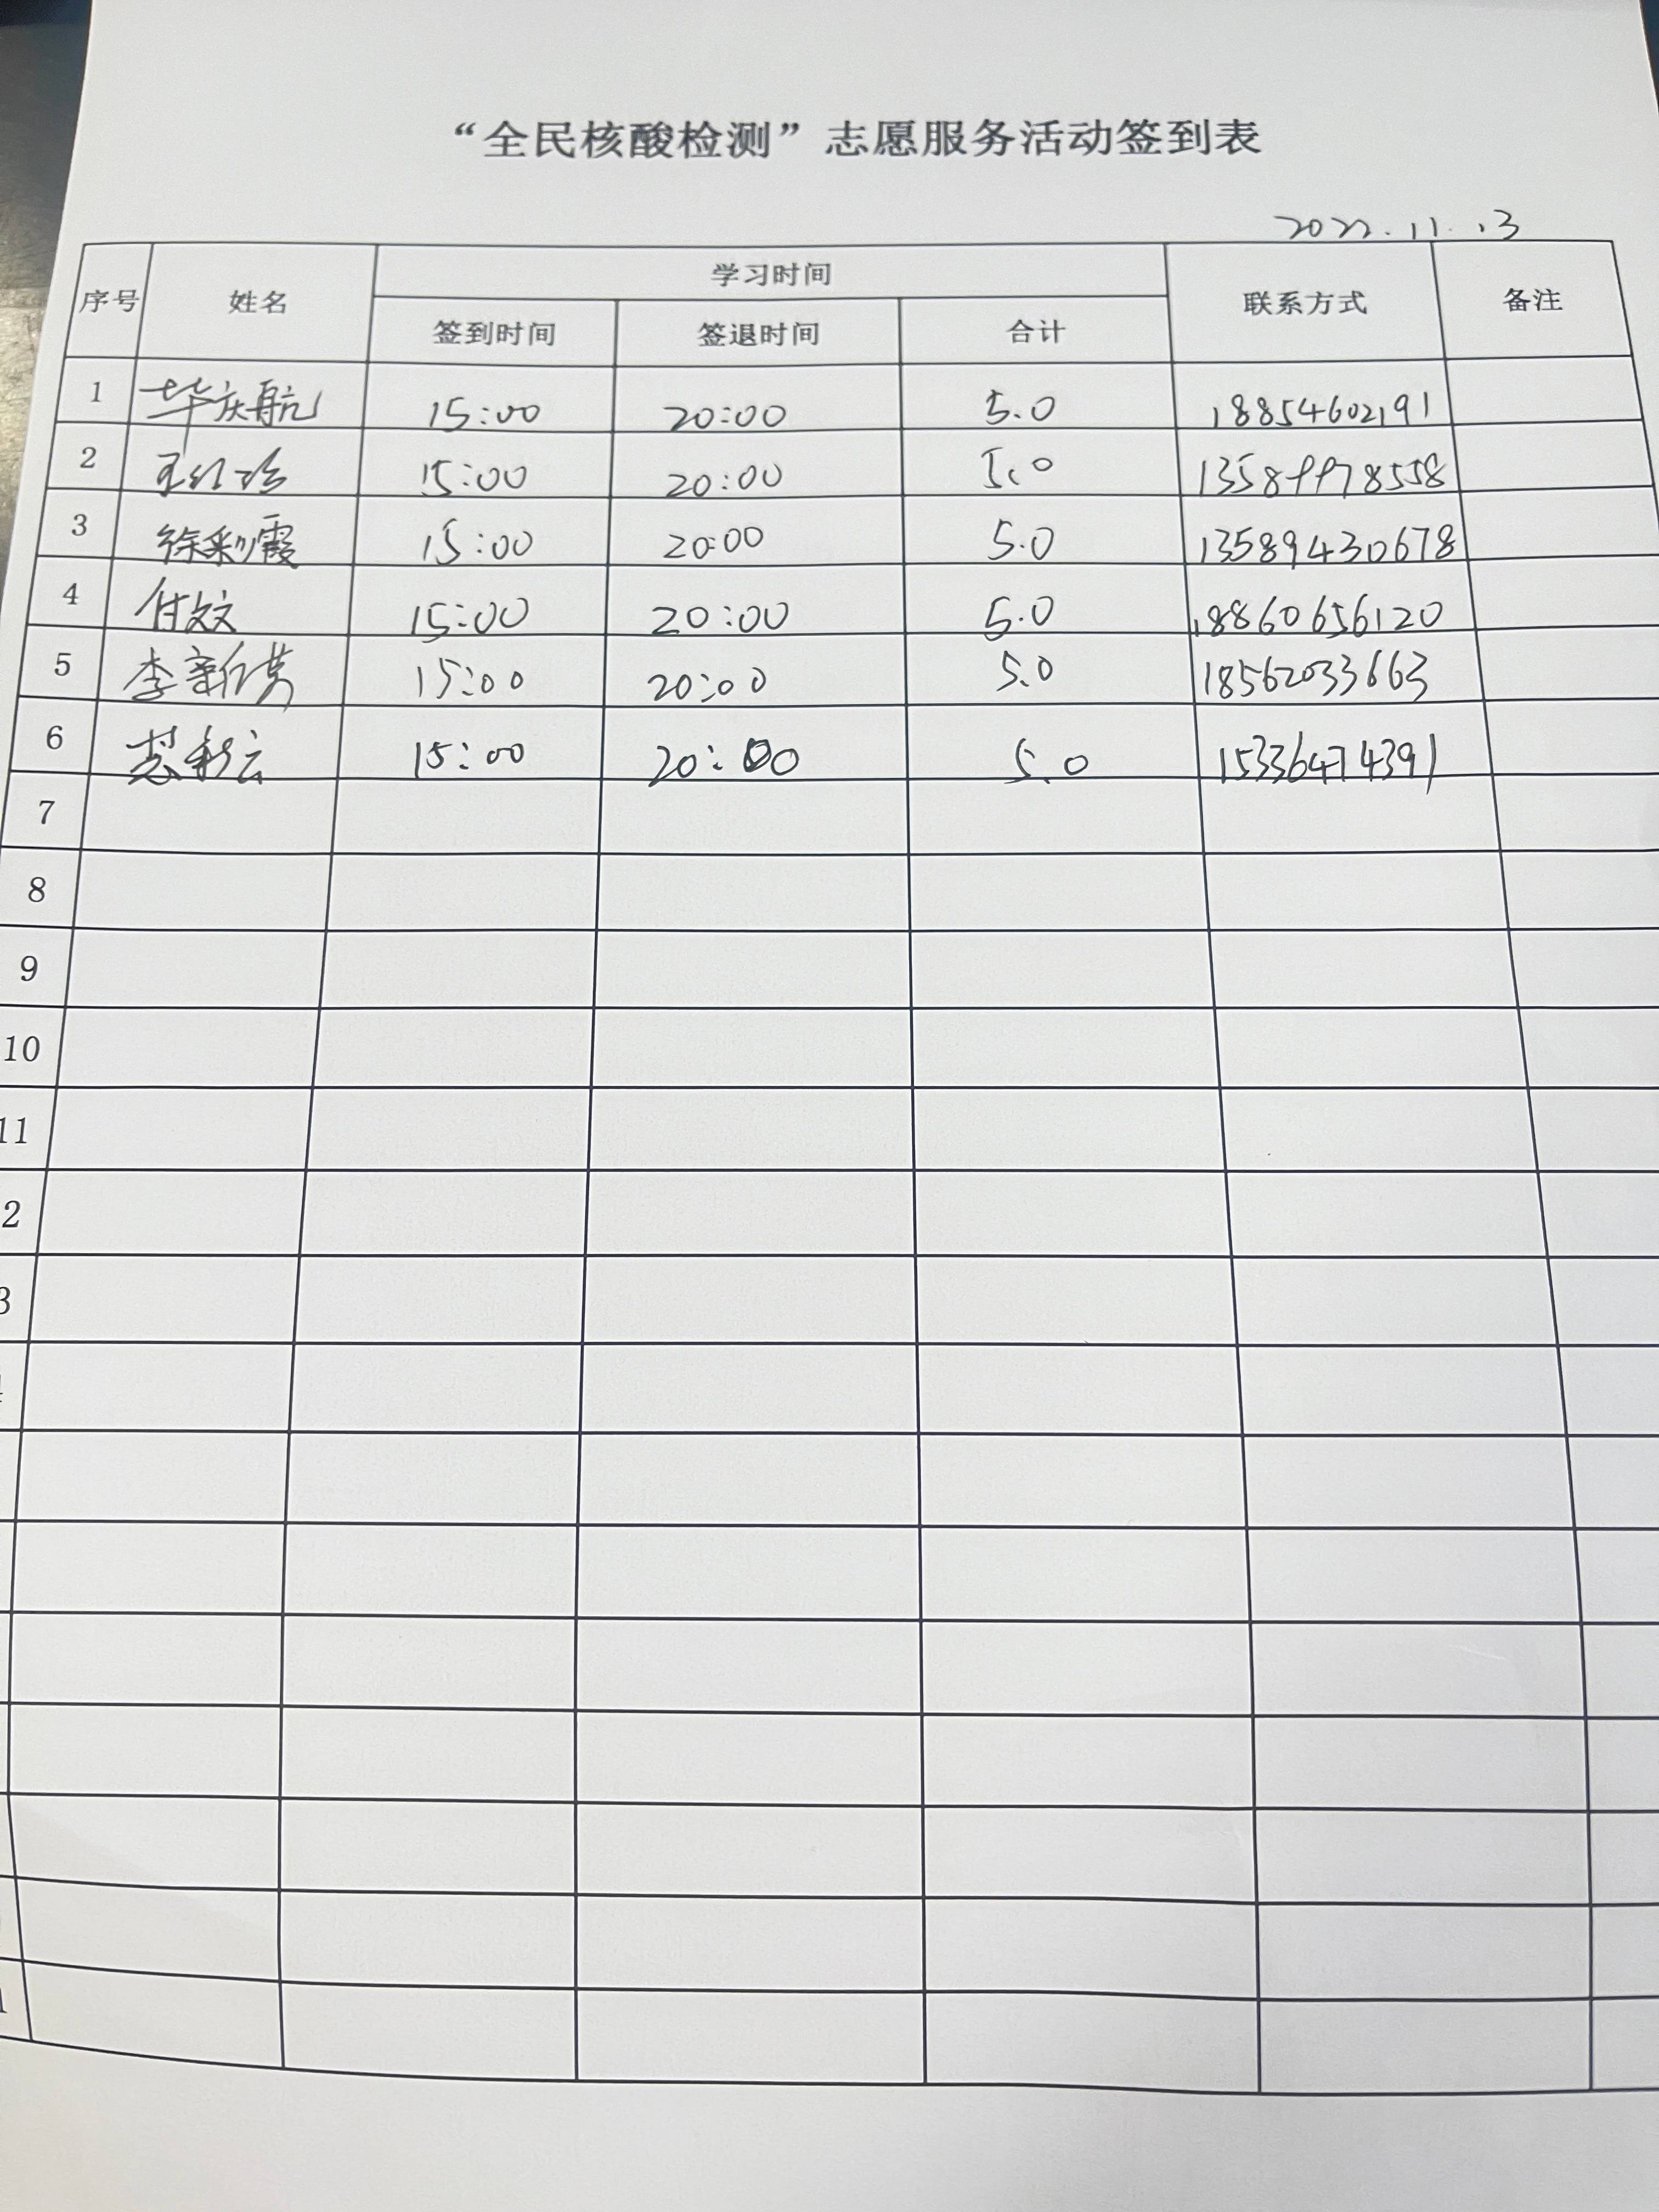 “全民核酸检测”志愿服务活动签到表
2022.11.13
序号 姓名 学习时间 联系方式 备注
签到时间 签退时间 合计
1 毕庆航 15:00 20:00 5.0 18854602191
2 15:00 20:00 5.0
3 徐彩霞 15:00 20:00 5.0 13589430678
4 付文文 15:00 20:00 5.0 18860656120
5 李新英 15:00 20:00 5.0 18562033663
6 15:00 20:00 5.0 15336474391
7
8
9
10
11
2
3